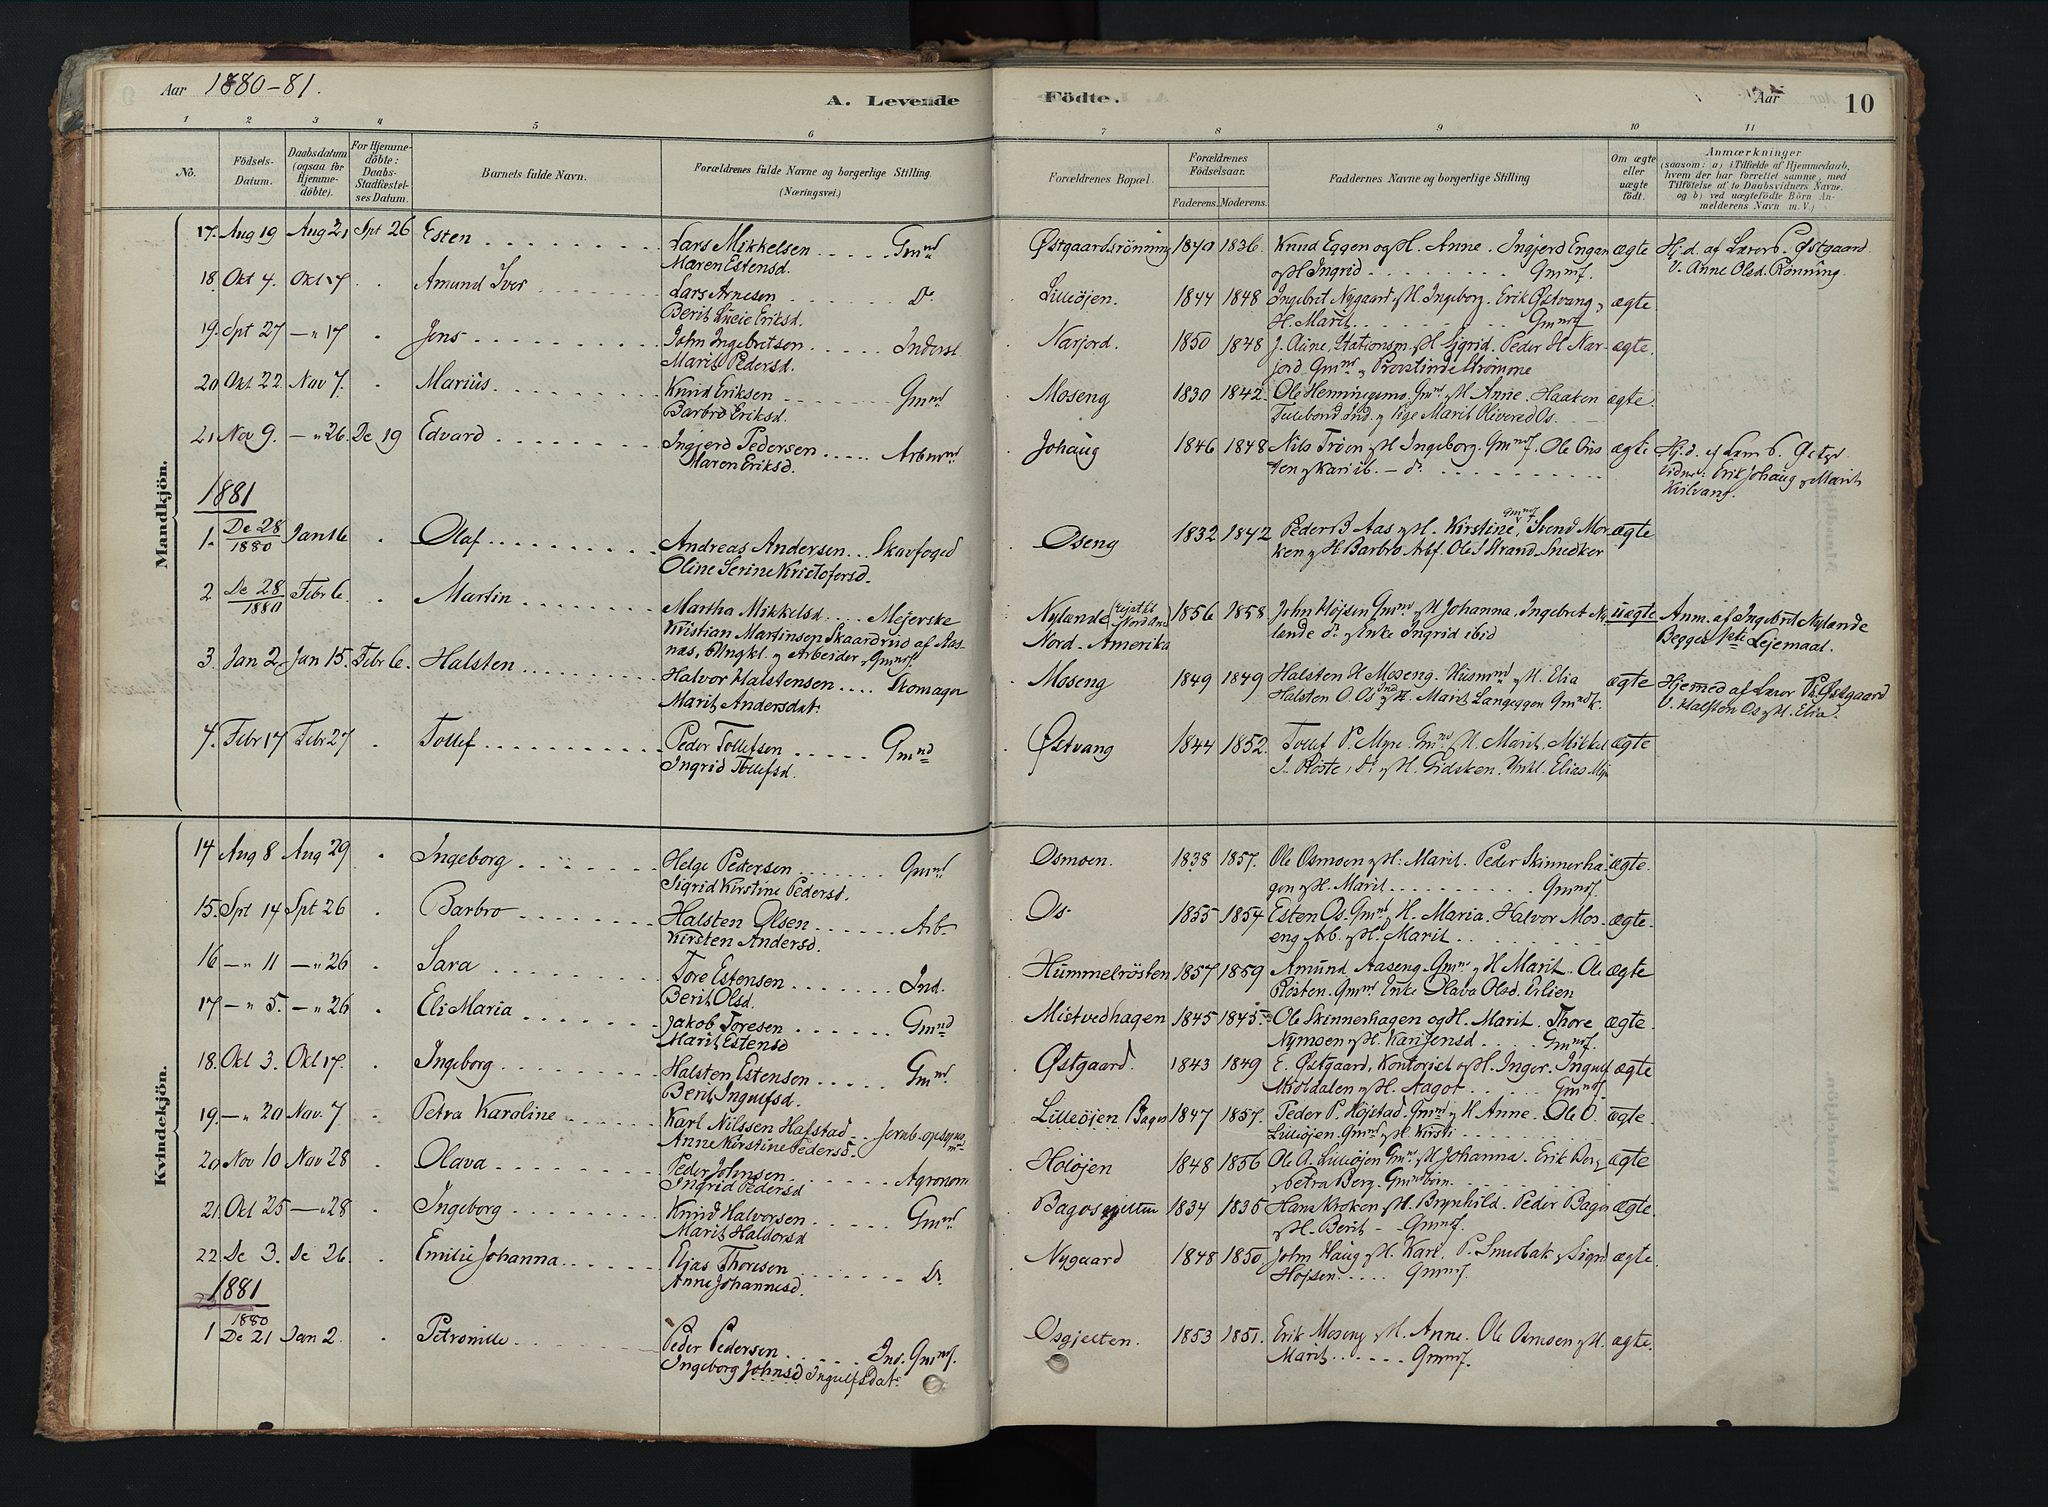 Aar 1880-81.
A. Levende Födte.
Aar 10
1 2 3 4 5 6 7 8 9 10 11
No.
Födsels-Datum.
Daabsdatum (ogsaa for Hjemmedöbte).
For Hjemmedöbte: Daabs-Stadfæstelses Datum.
Barnets fulde Navn.
Forældrenes fulde Navne og borgerlige Stilling. (Næringsvei.)
Forældrenes Bopæl.
Forældrenes Födselsaar.
Faderens. Moderens.
Faddernes Navne og borgerlige Stilling
Om ægte eller uægte födt.
Anmærkninger (saasom: a) i Tilfælde af Hjemmedaab, hvem der har forrettet samme, med Tilföielse af to Daabsvidners Navne, og b) ved uægtefödte Börn Anmelderens Navn m. V.)
Mandkjön.
17. Aug 19 Aug 21 Spt 26 Esten Lars Mikkelsen Gmnd Østgaardsrönning 1840 1836. Knud Eggen og H. Anne. Ingjerd Engan ægte Hj.d. af Lærer P. Østgaard
Maren Estensd. og H Ingrid Gmmf. V. Anne Olsd. Rönning.
18. Okt 4. Okt 17 Amund Iver Lars Arnesen Do Lilleöjen. 1844 1848. Ingebret Nygaard og H. Ingeborg. Erik Østvang og ægte.
Berit Lucie Eriksd. H. Marit Gmmf
19. Spt 27 -"- 17 Jens John Ingebretsen Inderst Narjord. 1850 1848 J. Aune, Stationsm. og H Sigrid. Peder H Nar- ægte.
Marit Pedersd. jord Gmnd og Provstinde Strömme
20 Okt 22 Nov 7. Marius Knud Eriksen Gmnd Moseng 1830 1842. Ole Hemmingsmo. Gmnd og H Anne. Haaken ægte.
Barbro Eriksd. Ind. og Pige Marit Os.
21 Nov 9. -"- 26. De 19 Edvard Ingjerd Pedersen Arbmnd Johaug 1846 1848 Nils Tröen og H Ingeborg. Gmmf. Ole ægte Hj.d. af Lær P.
Maren Eriksd. Vidne: Erik Johaug og Marit
1881
1. De 28/1880 Jan 16 Olaf Andreas Andersen Skovfoged Oseng 1832 1842 Peder B Aas og H. Kirstine, Gmmf Svend Mor- ægte
Oline Serine Kristofersd. ken og H. Barbro Arb. Ole J Strand. Snedker
2 De 28/1880 Febr 6. Martin Martha Mikkelsd. Mejerske Nylande 1856 1858 John Höjsen Gmnd og H Johanna, Ingebret Ny- uægte Anm. af Ingebret Nylande
Kristian Martinsen Skaardrud af Aas- Nord-Amerika lande do og Enke Ingrid ibid Begges 1ste Lejemaal.
næs, Ungkl. og Arbeider, Gmmf.
3. Jan 2 Jan 15. Febr 6. Halsten Halvor Halstensen Skomager Moseng 1849 1849 Halsten H Moseng. Husmnd og H. Elia ægte Hjemmed af Lærer P. Østgaard
Marit Andersdat. Halsten O Os Ind og H. Marit Langeggen Gmndk. V. Halsten Os og H. Elia.
4. Febr 17 Febr 27 Tollef Peder Tollefsen Gmnd Østvang 1844 1852. Tollef P. Myre. Gmnd og H. Marit. Mikkel ægte
Ingrid Tollefsd. J. Röste, do og H. Gidsken. Unkl. Elias
Kvindekjön.
14 Aug 8 Aug 29 Ingeborg Helge Pedersen Gmnd Osmoen. 1838 1857. Ole Osmoen og H. Marit. Peder Skinnerha- ægte.
Sigrid Kirstine Pedersd. gen og H. Marit Gmmf
15. Spt 14 Spt 26 Barbro Halsten Olsen Arb. Os. 1855 1854 Esten Os. Gmnd og H. Maria. Halvor Mos- ægte.
Kirsten Andersd. eng Arb. og H. Marit
16 -"- 11 -"- 26 Sara Tore Estensen Ind. Hummelrösten 1857 1859 Amund Aaseng. Gmnd og H Marit. Ole ægte
Berit Olsd. Rösten. Gmnd Enke Olava Olsd. Erlien
17 -"- 5. -"- 26 Eli Maria Jakob Toresen Gmnd Mistvedhagen 1845 1845 Ole Skinnerhagen og H. Marit. Thore ægte.
Marit Estensd Nymoen og H. Kari Jensd Gmmf.
18. Okt 3. Okt 17. Ingeborg Halsten Estensen Gmnd. Østgaard. 1843 1849 E. Østgaard, Kontorist og H. Inger. Ingulf ægte
Berit Ingulfsd. Moldalen og H. Aagot Gmmf
19. -"- 20 Nov. 7 Petra Karoline Karl Nilssen Hafstad Jernb. opsynsm. Lilleöjen 1847 1857. Peder P. Höistad. Gmnd og H Anne. Ole O. ægte.
Anne Kirstine Pedersd. Lilleöjen. Gmnd og H. Kirsti
20 Nov 10 Nov 28 Olava Peder Johnsen Agronom Holöjen 1848 1856 Ole A. Lilleöjen Gmnd og H Johanna. Erik Berg ægte
Ingrid Pedersd og Petra Berg.
21. Okt 25 -"- 28 Ingeborg Knud Halvorsen Gmnd 1834 1835 Hans Kroken og H. Brynhild. Peder ægte.
Marit Haldorsd og H. Berit Gmmf.
22 De 3. De 26. Emilie Johanna Elias Thoresen Do Nygaard 1848 1850 John Haug og H. Kari. P. ægte.
Anne Johannesd. Höjsen Gmmf.
1881
1 1880 De 21 Jan 2. Petronille Peder Pedersen Ind. Gmmf. Osgjelten. 1853 1851. Erik Moseng og H. Anne. Ole Osmoen og H. ægte.
Ingeborg Johnsd Ingulfsdat. Marit Gmmf.